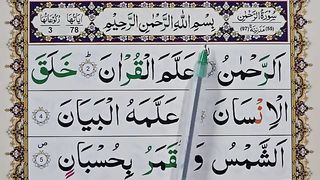 سُورَةُ الرَّحْمٰنِ بِسْمِ اللّٰهِ الرَّحْمٰنِ الرَّحِيْمِ اٰيَاتُهَا 78 رُكُوْعَاتُهَا 3
اَلرَّحْمٰنُ عَلَّمَ الْقُرْاٰنَ ط 2 خَلَقَ
الْاِنْسَانَ عَلَّمَهُ الْبَيَانَ 4
اَلشَّمْسُ وَالْقَمَرُ بِحُسْبَانٍ ص 5